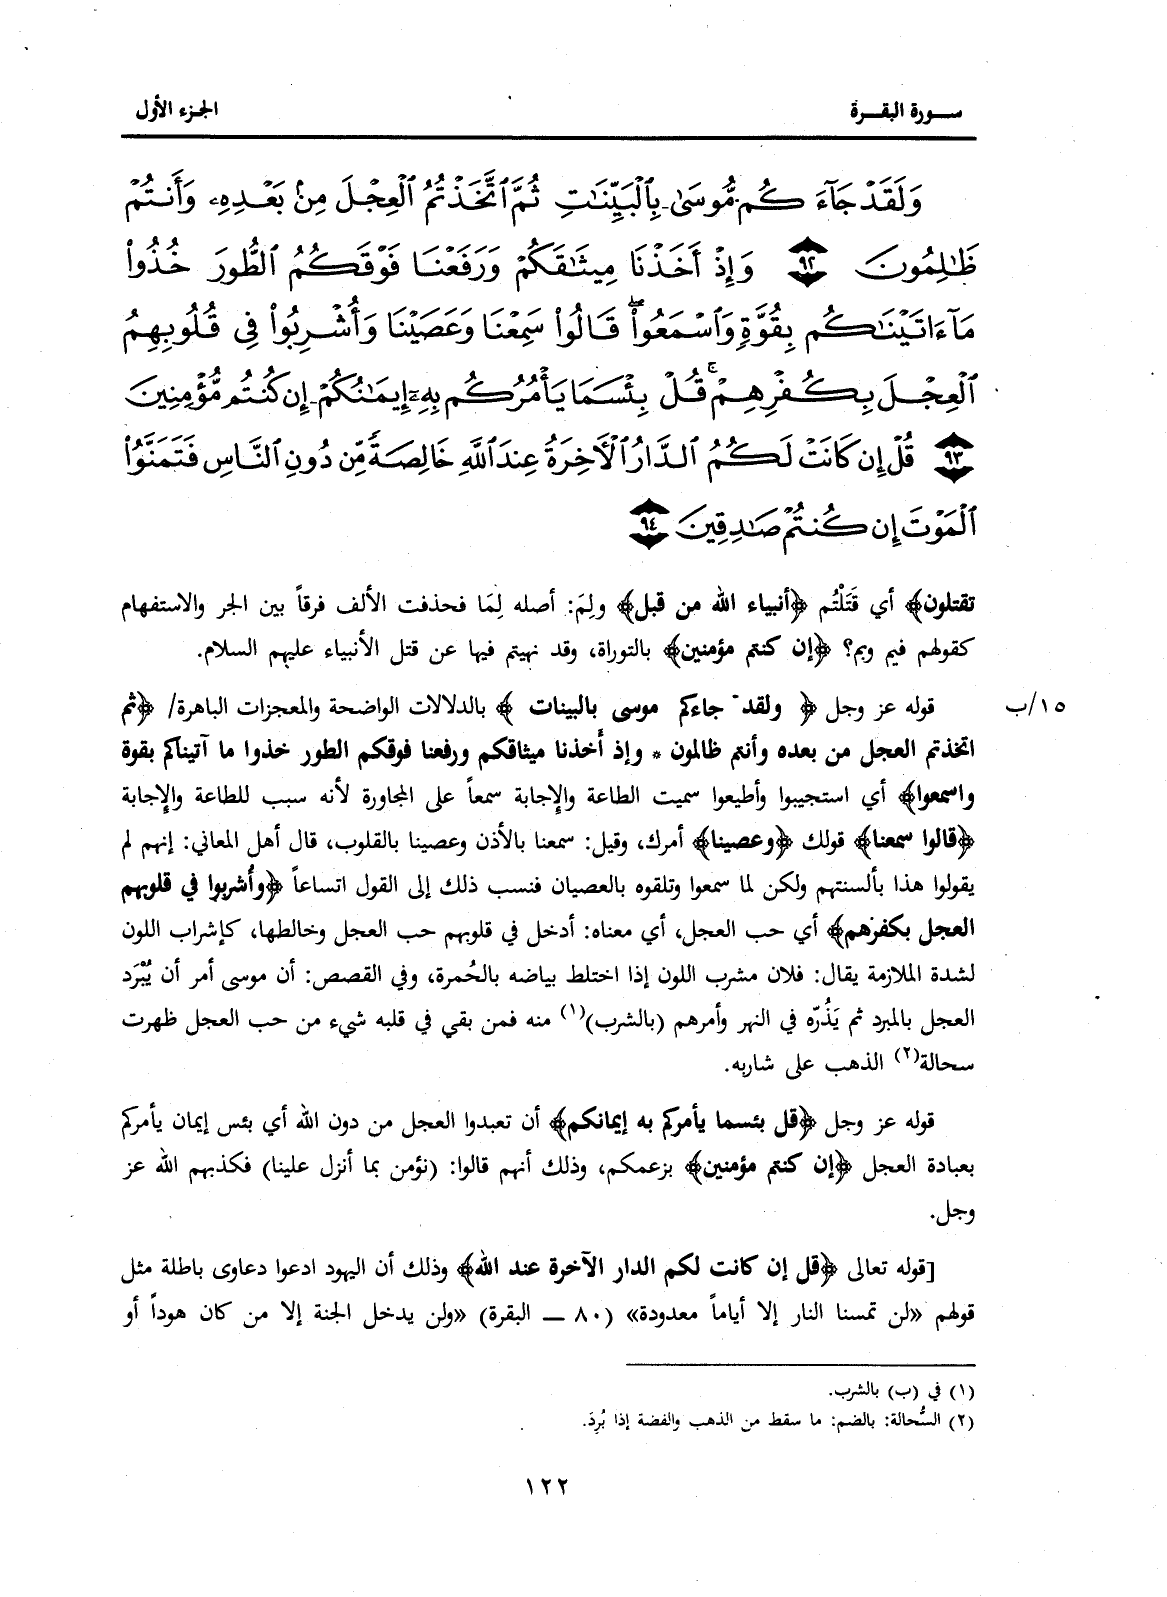 سـورة البقـرة
الجزء الأول
وَلَقَدْ جَآءَكُم مُّوسَىٰ بِٱلْبَيِّنَٰتِ ثُمَّ ٱتَّخَذْتُمُ ٱلْعِجْلَ مِنۢ بَعْدِهِۦ وَأَنتُمْ
ظَٰلِمُونَ ٩٢ وَإِذْ أَخَذْنَا مِيثَٰقَكُمْ وَرَفَعْنَا فَوْقَكُمُ ٱلطُّورَ خُذُوا۟
مَآ ءَاتَيْنَٰكُم بِقُوَّةٍ وَٱسْمَعُوا۟ ۖ قَالُوا۟ سَمِعْنَا وَعَصَيْنَا وَأُشْرِبُوا۟ فِى قُلُوبِهِمُ
ٱلْعِجْلَ بِكُفْرِهِمْ ۚ قُلْ بِئْسَمَا يَأْمُرُكُم بِهِۦٓ إِيمَٰنُكُمْ إِن كُنتُم مُّؤْمِنِينَ
٩٣ قُلْ إِن كَانَتْ لَكُمُ ٱلدَّارُ ٱلْأَخِرَةُ عِندَ ٱللَّهِ خَالِصَةً مِّن دُونِ ٱلنَّاسِ فَتَمَنَّوُا۟
ٱلْمَوْتَ إِن كُنتُمْ صَٰدِقِينَ ٩٤
تقتلون﴾ أي قَتَلْتُم ﴿أنبياء الله من قبل﴾ ولِمَ: أصله لِمَا فحذفت الألف فرقاً بين الجر والاستفهام
كقولهم فيم وبم؟ ﴿إن كنتم مؤمنين﴾ بالتوراة، وقد نهيتم فيها عن قتل الأنبياء عليهم السلام.
١٥/ب
قوله عز وجل ﴿ ولقد جاءكم موسى بالبينات ﴾ بالدلالات الواضحة والمعجزات الباهرة/ ﴿ثم
اتخذتم العجل من بعده وأنتم ظالمون * وإذ أخذنا ميثاقكم ورفعنا فوقكم الطور خذوا ما آتيناكم بقوة
واسمعوا﴾ أي استجيبوا وأطيعوا سميت الطاعة والإجابة سمعاً على المجاورة لأنه سبب للطاعة والإجابة
﴿قالوا سمعنا﴾ قولك ﴿وعصينا﴾ أمرك، وقيل: سمعنا بالأذن وعصينا بالقلوب، قال أهل المعاني: إنهم لم
يقولوا هذا بألسنتهم ولكن لما سمعوا وتلقوه بالعصيان فنسب ذلك إلى القول اتساعاً ﴿وأُشربوا في قلوبهم
العجل بكفرهم﴾ أي حب العجل، أي معناه: أدخل في قلوبهم حب العجل وخالطها، كإشراب اللون
لشدة الملازمة يقال: فلان مشرب اللون إذا اختلط بياضه بالحُمرة، وفي القصص: أن موسى أمر أن يُبْرَد
العجل بالمبرد ثم يَذُرّه في النهر وأمرهم (بالشرب)(١) منه فمن بقي في قلبه شيء من حب العجل ظهرت
سحالة(٢) الذهب على شاربه.
قوله عز وجل ﴿قل بئسما يأمركم به إيمانكم﴾ أن تعبدوا العجل من دون الله أي بئس إيمان يأمركم
بعبادة العجل ﴿إن كنتم مؤمنين﴾ بزعمكم، وذلك أنهم قالوا: (نؤمن بما أنزل علينا) فكذبهم الله عز
وجل.
[قوله تعالى ﴿قل إن كانت لكم الدار الآخرة عند الله﴾ وذلك أن اليهود ادعوا دعاوى باطلة مثل
قولهم «لن تمسنا النار إلا أياماً معدودة» (٨٠ ــ البقرة) «ولن يدخل الجنة إلا من كان هوداً أو
(١) في (ب) بالشرب.
(٢) السُّحالة: بالضم: ما سقط من الذهب والفضة إذا بُرِدَ.
١٢٢